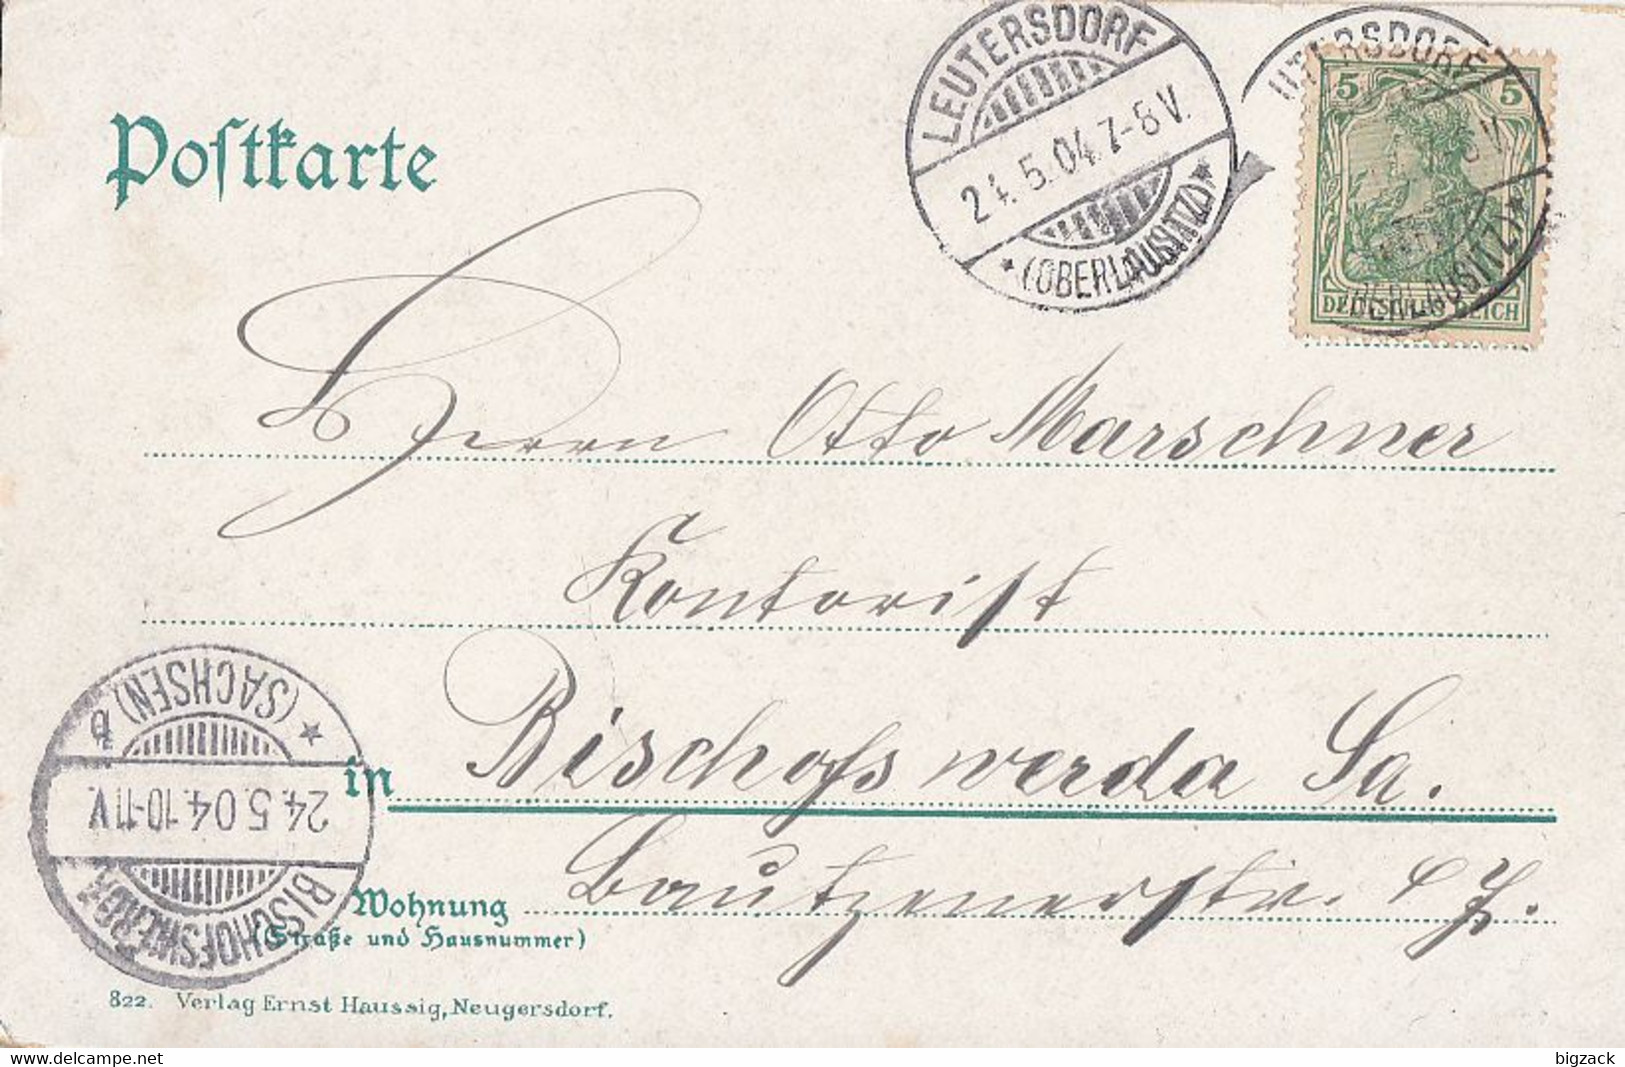 LEUTERSDORF
24.5.04.7-8V.
*(OBERLAUSITZ)*
UTERSDORF
8 V.
ERLAUSITZ)*
5 5
DEUTSCHES REICH
Postkarte
Herrn Otto Marschner
Kontorist
in Bischofswerda Sa.
Wohnung Bautzenerstr.
(Straße und Hausnummer)
BISCHOFSWERDA
24.5.04.10-11V.
* (SACHSEN) b
822. Verlag Ernst Haussig, Neugersdorf.
www.delcampe.net
bigzack